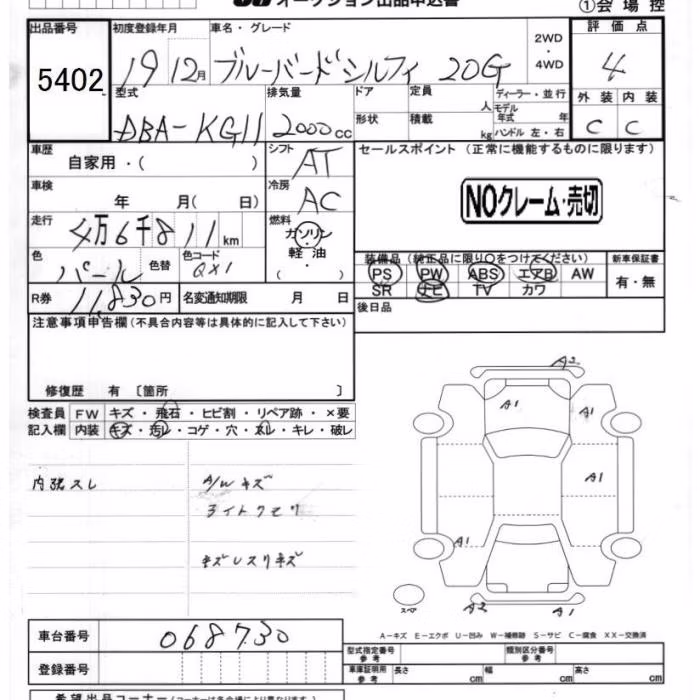 オークション出品申込書
①会場控
出品番号 初度登録年月 車名・グレード 2WD ・ 4WD 評価点
5402 19 12月 ブルーバードシルフィ 20G 4
型式 排気量 ドア 定員 人 ディーラー・並行 外装 内装
DBA-KG11 2000cc 形状 積載 kg モデル年式 年 ハンドル 左・右 C C
車歴 自家用・( ) シフト AT セールスポイント (正常に機能するものに限ります)
車検 年 月( 日) 冷房 AC NOクレーム・売切
走行 4万6千811km 燃料 ガソリン・軽油・( )
色 パール 色替 色コード QX1 装備品 (純正品に限り○をつけてください) 新車保証書
PS PW ABS エアB AW 有・無
SR ナビ TV カワ
R券 11,830円 名変通知期限 月 日 後日品
注意事項申告欄(不具合内容等は具体的に記入して下さい)
修復歴 有 〔箇所 〕
検査員 FW キズ・飛石・ヒビ割・リペア跡・×要
記入欄 内装 キズ・汚レ・コゲ・穴・スレ・キレ・破レ
内張スレ A/Wキズ
ライトクモリ
キズレスリキズ
A2
A1 A1
A1
A1
スペ A2 A1
A-キズ E-エクボ U-凹み W-補修跡 S-サビ C-腐食 XX-交換済
車台番号 068730
型式指定番号 参考 類別区分番号 参考
登録番号 車庫証明用 参考 長さ cm 幅 cm 高さ cm
希望出品コーナー(コーナーは各会場により異なります)